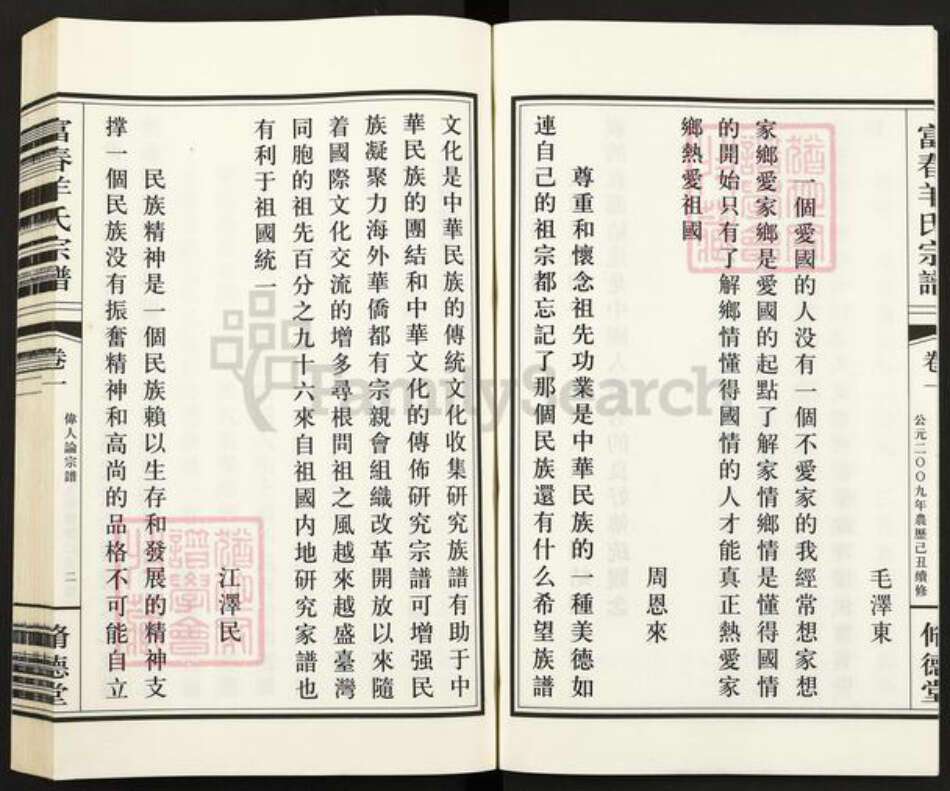 富春羊氏宗譜
卷一
公元二〇〇九年農歷己丑續修
脩德堂
毛澤東
一個愛國的人没有一個不愛家的我經常想家想
家鄉愛家鄉是愛國的起點了解家情鄉情是懂得國情
的開始只有了解鄉情懂得國情的人才能真正熱愛家
鄉熱愛祖國
周恩來
尊重和懷念祖先功業是中華民族的一種美德如
連自己的祖宗都忘記了那個民族還有什么希望族譜
文化是中華民族的傳統文化收集研究族譜有助于中
華民族的團結和中華文化的傳佈研究宗譜可增强民
族凝聚力海外華僑都有宗親會組織改革開放以來隨
着國際文化交流的增多尋根問祖之風越來越盛臺灣
同胞的祖先百分之九十六來自祖國内地研究家譜也
有利于祖國統一
江澤民
民族精神是一個民族賴以生存和發展的精神支
撑一個民族没有振奮精神和高尚的品格不可能自立
富春羊氏宗譜
卷一
偉人論宗譜
二
脩德堂
FamilySearch